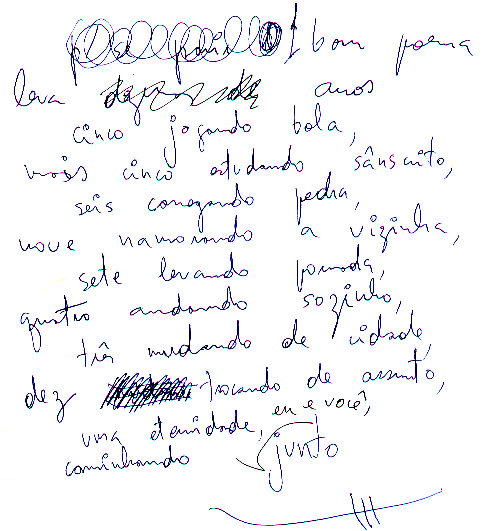 1 bom poema
leva anos
cinco jogando bola,
mais cinco estudando sânscrito,
seis carregando pedra,
nove namorando a vizinha,
sete levando porrada,
quatro andando sozinho,
três mudando de cidade,
dez trocando de assunto,
uma eternidade, eu e você,
caminhando junto